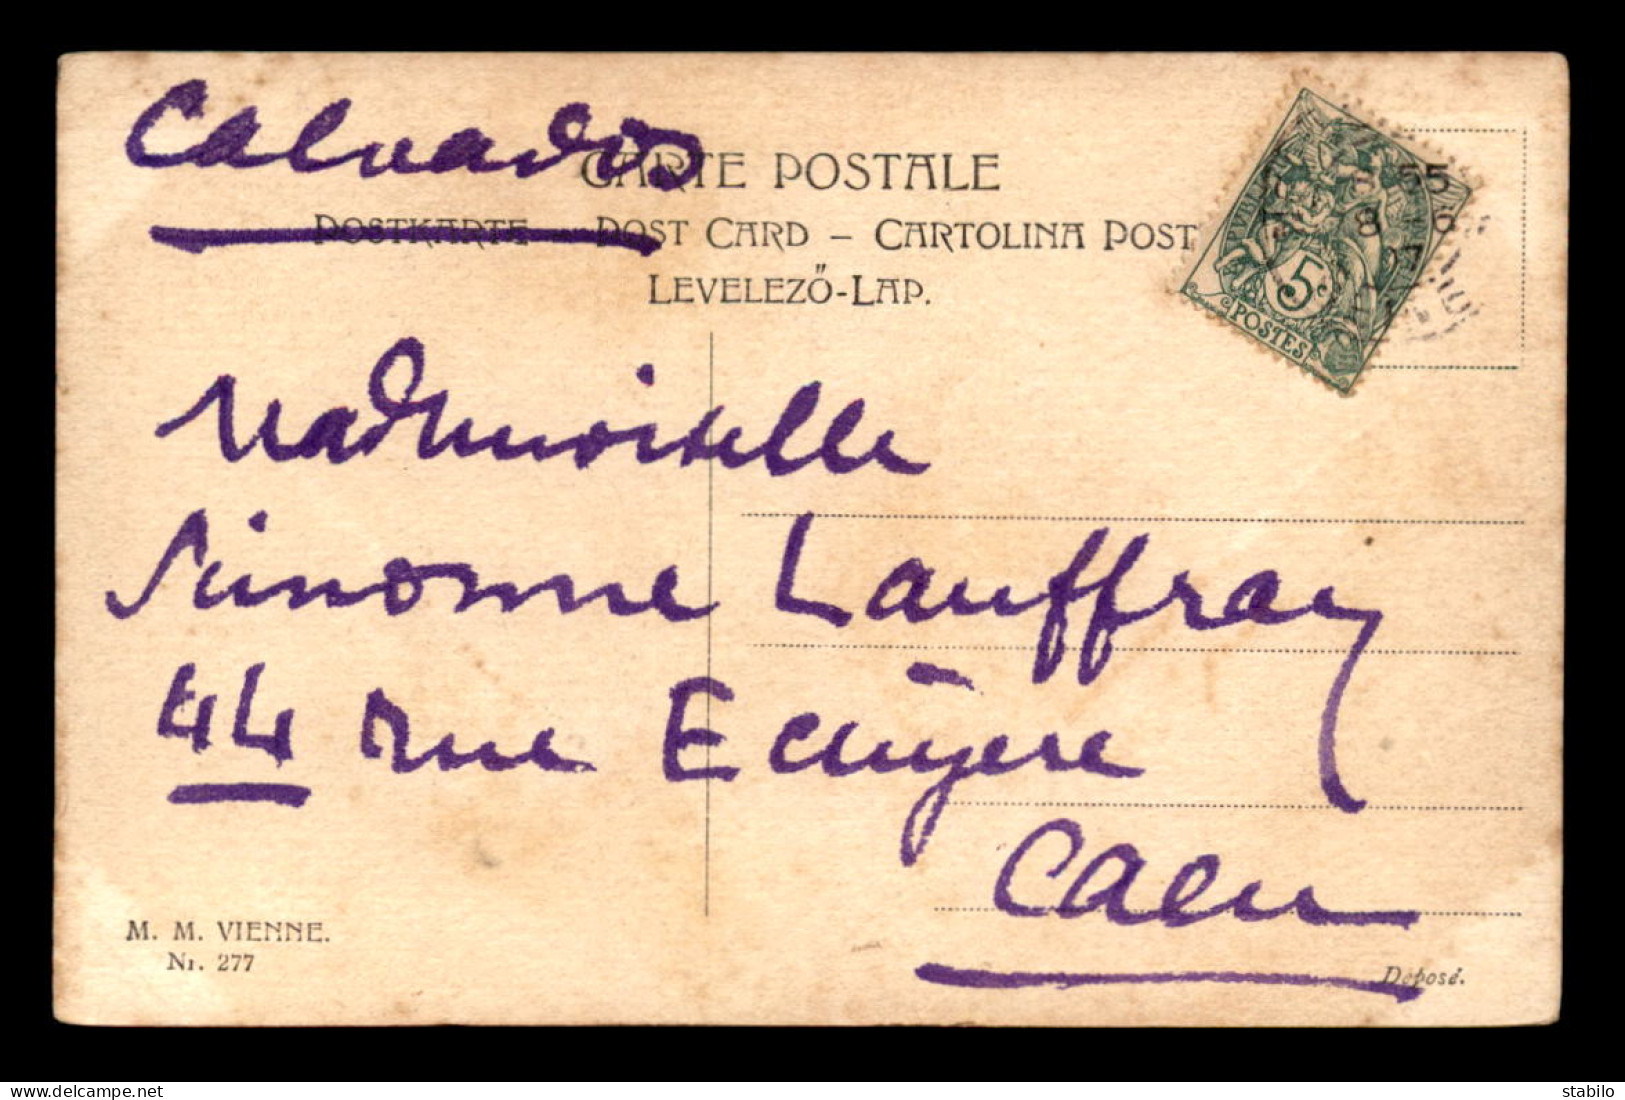 Calvados
CARTE POSTALE
POSTKARTE – POST CARD – CARTOLINA POST
LEVELEZŐ-LAP.
5c
POSTES
55
8 6
07
Mademoiselle
Simonne Lauffray
44 rue Ecuyère
Caen
M. M. VIENNE.
Nr. 277
Deposé.
delcampe.net
stabilo